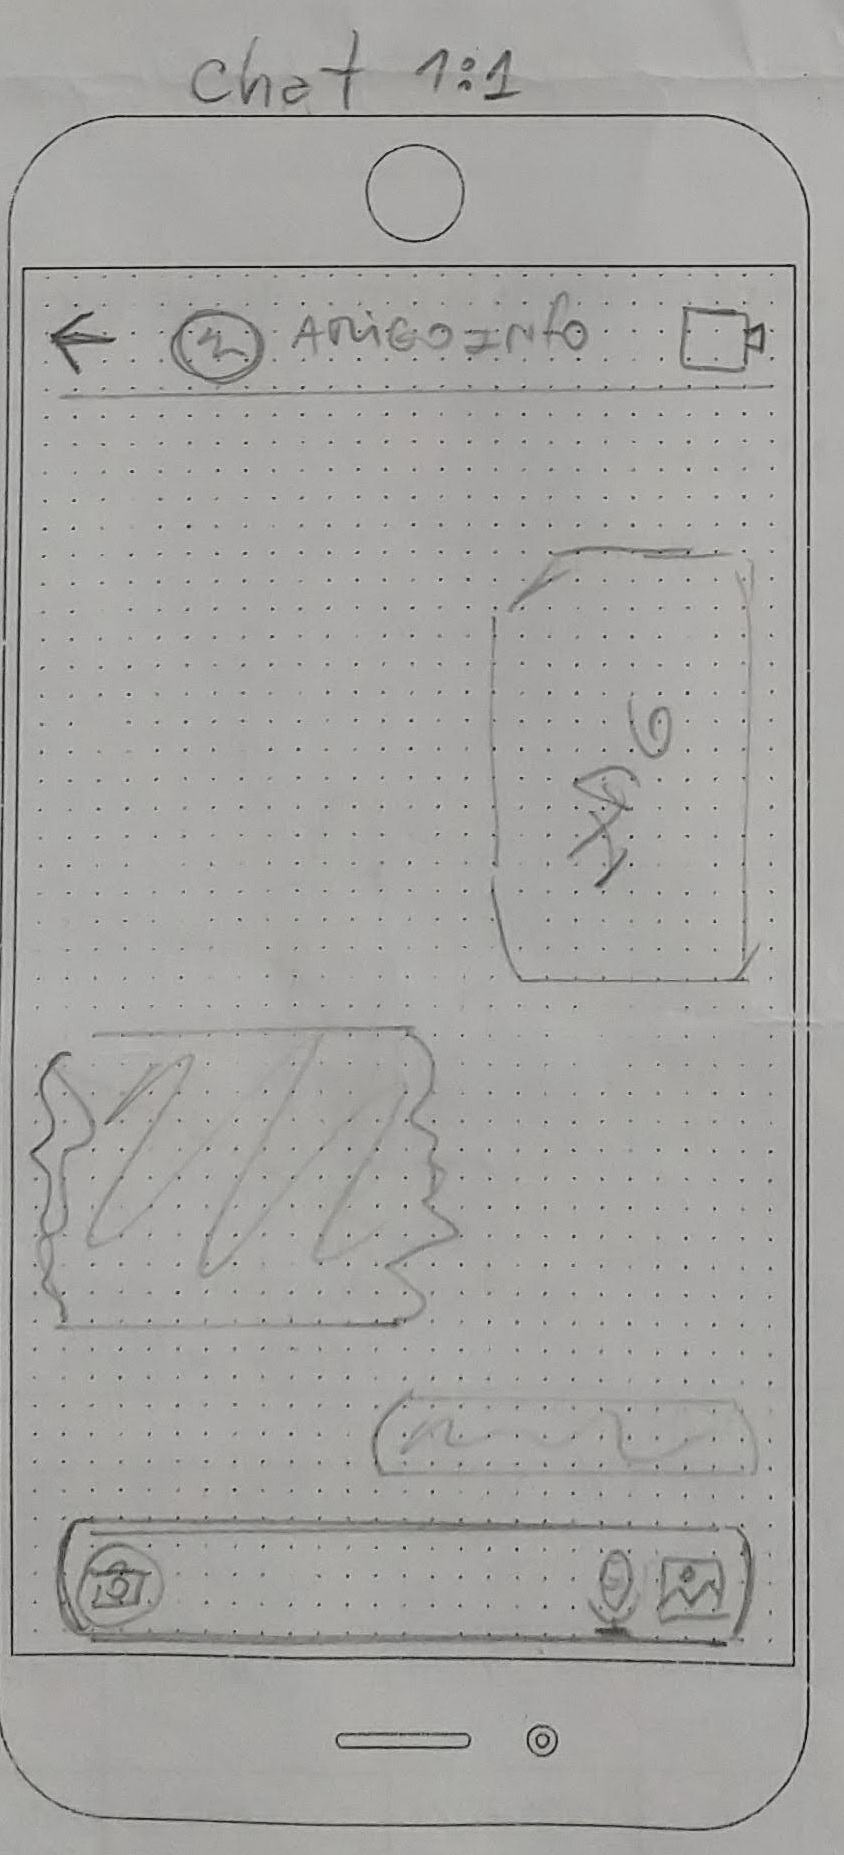 Chat 1:1
AMIGO INFO